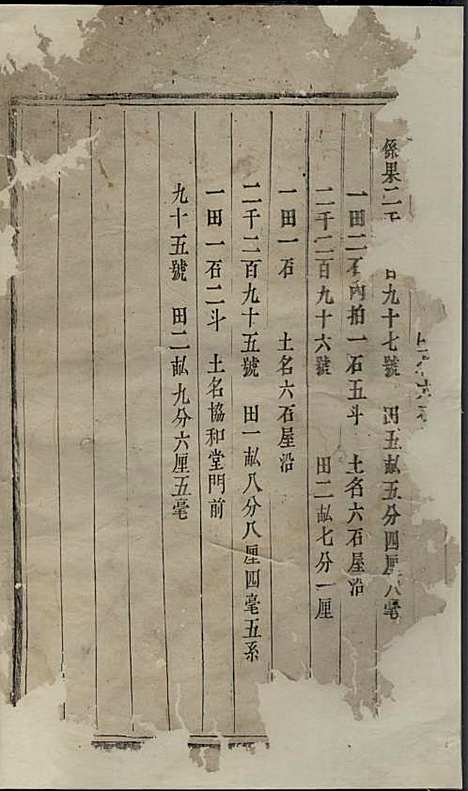 六石
係果二千 百九十七號 田五畝五分四厘八毫
一田二石內拍一石五斗 土名六石屋沿
二千二百九十六號 田二畝七分一厘
一田一石 土名六石屋沿
二千二百九十五號 田一畝八分八厘四毫五系
一田一石二斗 土名協和堂門前
九十五號 田二畝九分六厘五毫